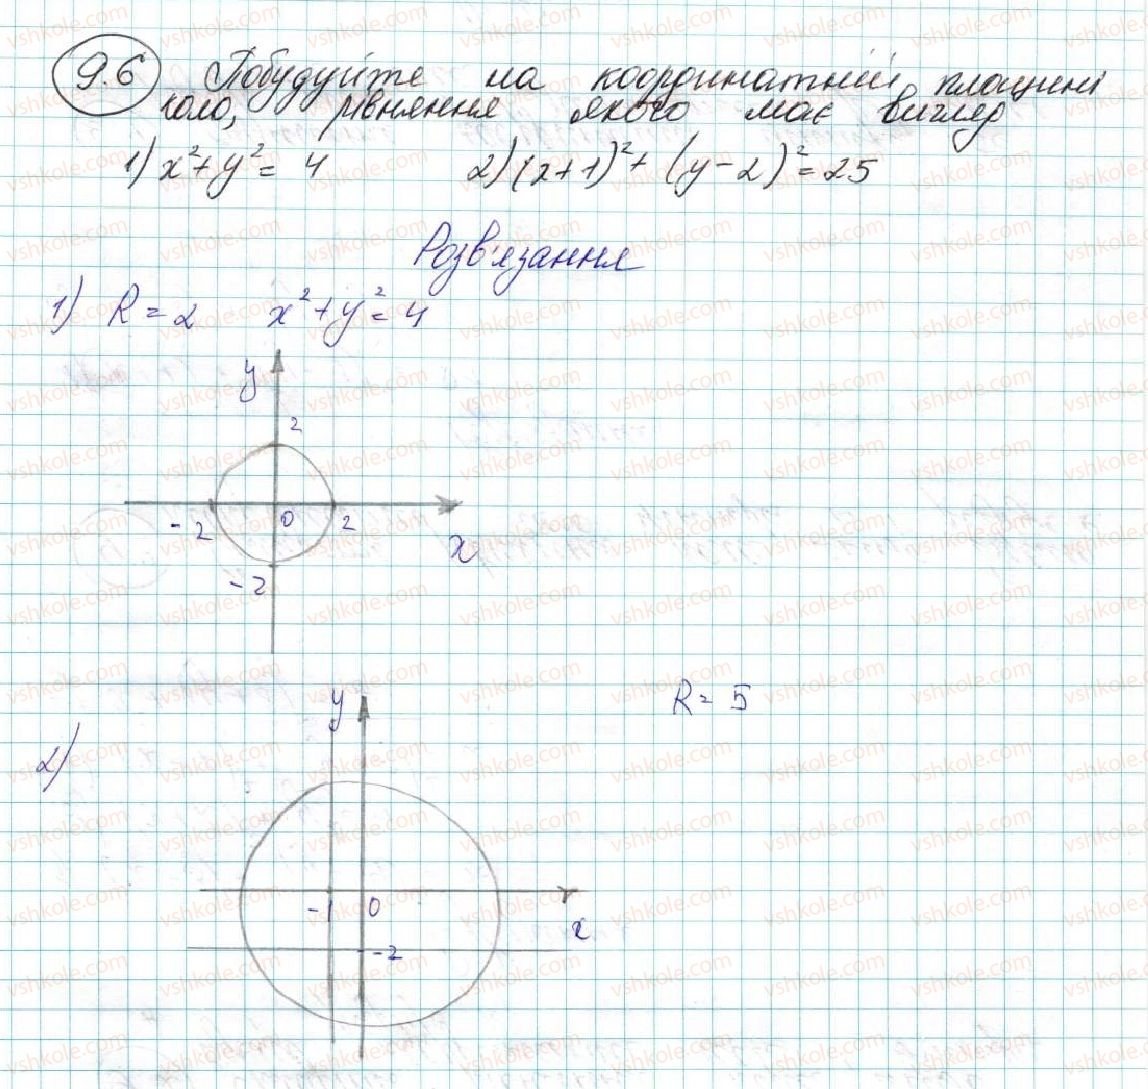 9.6 Побудуйте на координатній площині
коло, рівняння якого має вигляд
1) x²+y²= 4 2) (x+1)²+ (y-2)²=25
Розв'язання
1) R=2 x²+y²=4
y
2
-2 0 2
x
-2
y
R= 5
2)
-1 0
x
-2